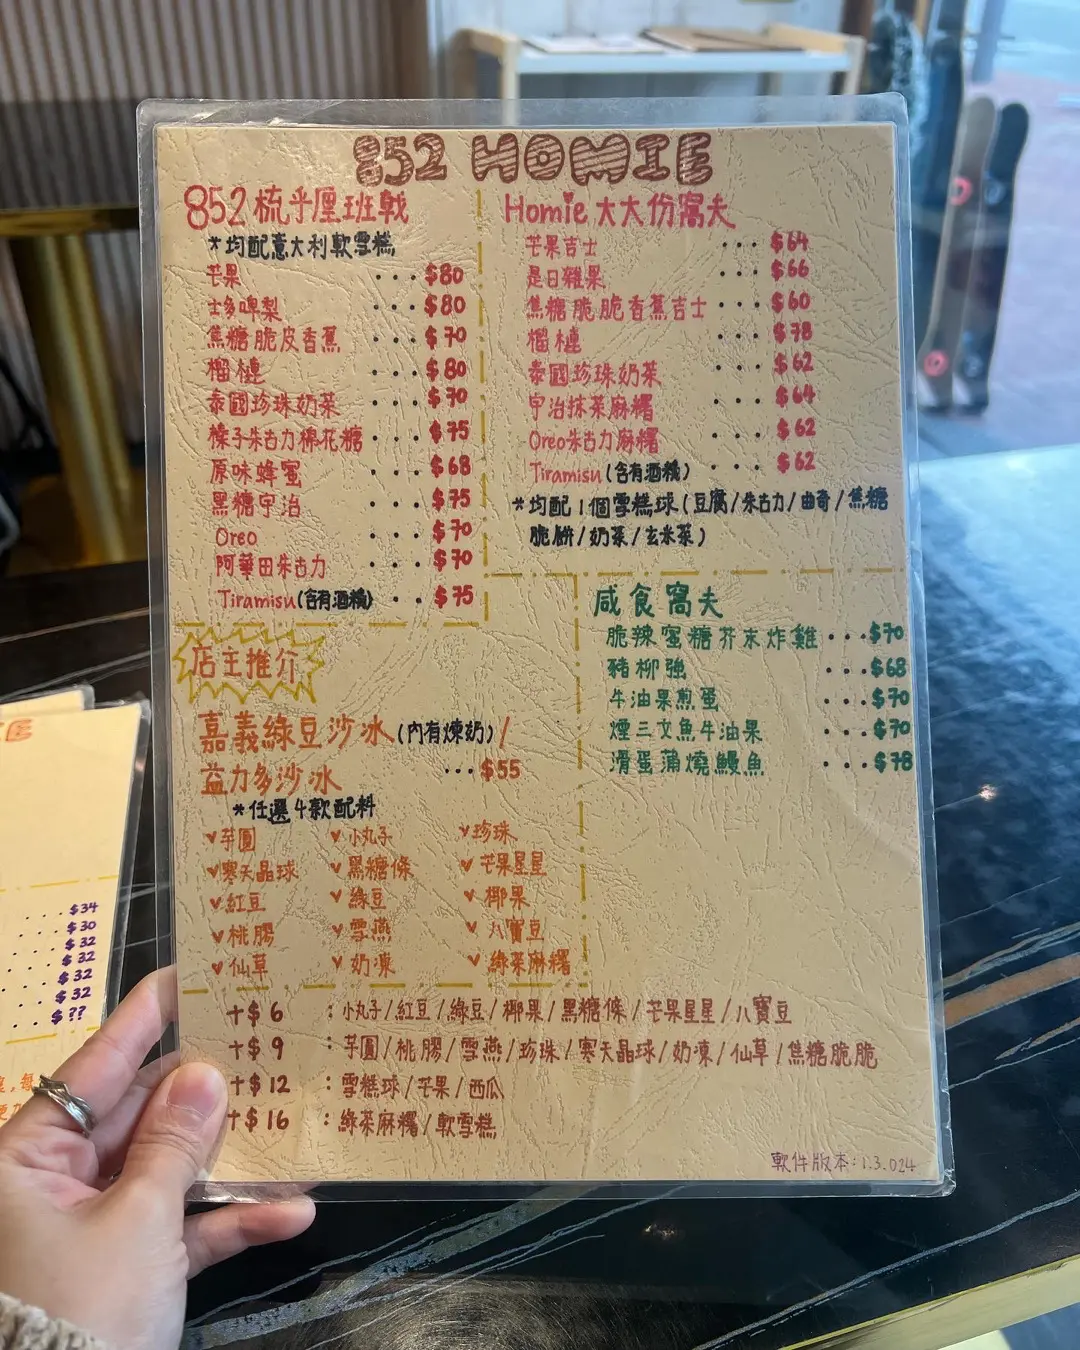 852 HOMIE
852 梳乎厘班戟
*均配意大利軟雪糕
芒果 ... $80
士多啤梨 ... $80
焦糖脆皮香蕉 ... $70
榴槤 ... $80
泰國珍珠奶茶 ... $70
榛子朱古力棉花糖 ... $75
原味蜂蜜 ... $68
黑糖宇治 ... $75
Oreo ... $70
阿華田朱古力 ... $70
Tiramisu(含有酒精) ... $75
Homie 大大份窩夫
芒果吉士 ... $64
是日雜果 ... $66
焦糖脆脆香蕉吉士 ... $60
榴槤 ... $78
泰國珍珠奶茶 ... $62
宇治抹茶麻糬 ... $64
Oreo朱古力麻糬 ... $62
Tiramisu(含有酒精) ... $62
*均配1個雪糕球(豆腐/朱古力/曲奇/焦糖
脆餅/奶茶/玄米茶)
咸食窩夫
脆辣蜜糖芥末炸雞 ... $70
豬柳強 ... $68
牛油果煎蛋 ... $70
煙三文魚牛油果 ... $70
滑蛋蒲燒鰻魚 ... $78
店主推介
嘉義綠豆沙冰(內有煉奶)/
益力多沙冰 ... $55
*任選4款配料
♥芋圓 ♥小丸子 ♥珍珠
♥寒天晶球 ♥黑糖條 ♥芒果星星
♥紅豆 ♥綠豆 ♥椰果
♥桃膠 ♥雪燕 ♥八寶豆
♥仙草 ♥奶凍 ♥綠茶麻糬
+$6 : 小丸子/紅豆/綠豆/椰果/黑糖條/芒果星星/八寶豆
+$9 : 芋圓/桃膠/雪燕/珍珠/寒天晶球/奶凍/仙草/焦糖脆脆
+$12 : 雪糕球/芒果/西瓜
+$16 : 綠茶麻糬/軟雪糕
軟件版本:1.3.024
E
.... $34
.... $30
.... $32
.... $32
.... $32
.... $32
... $??